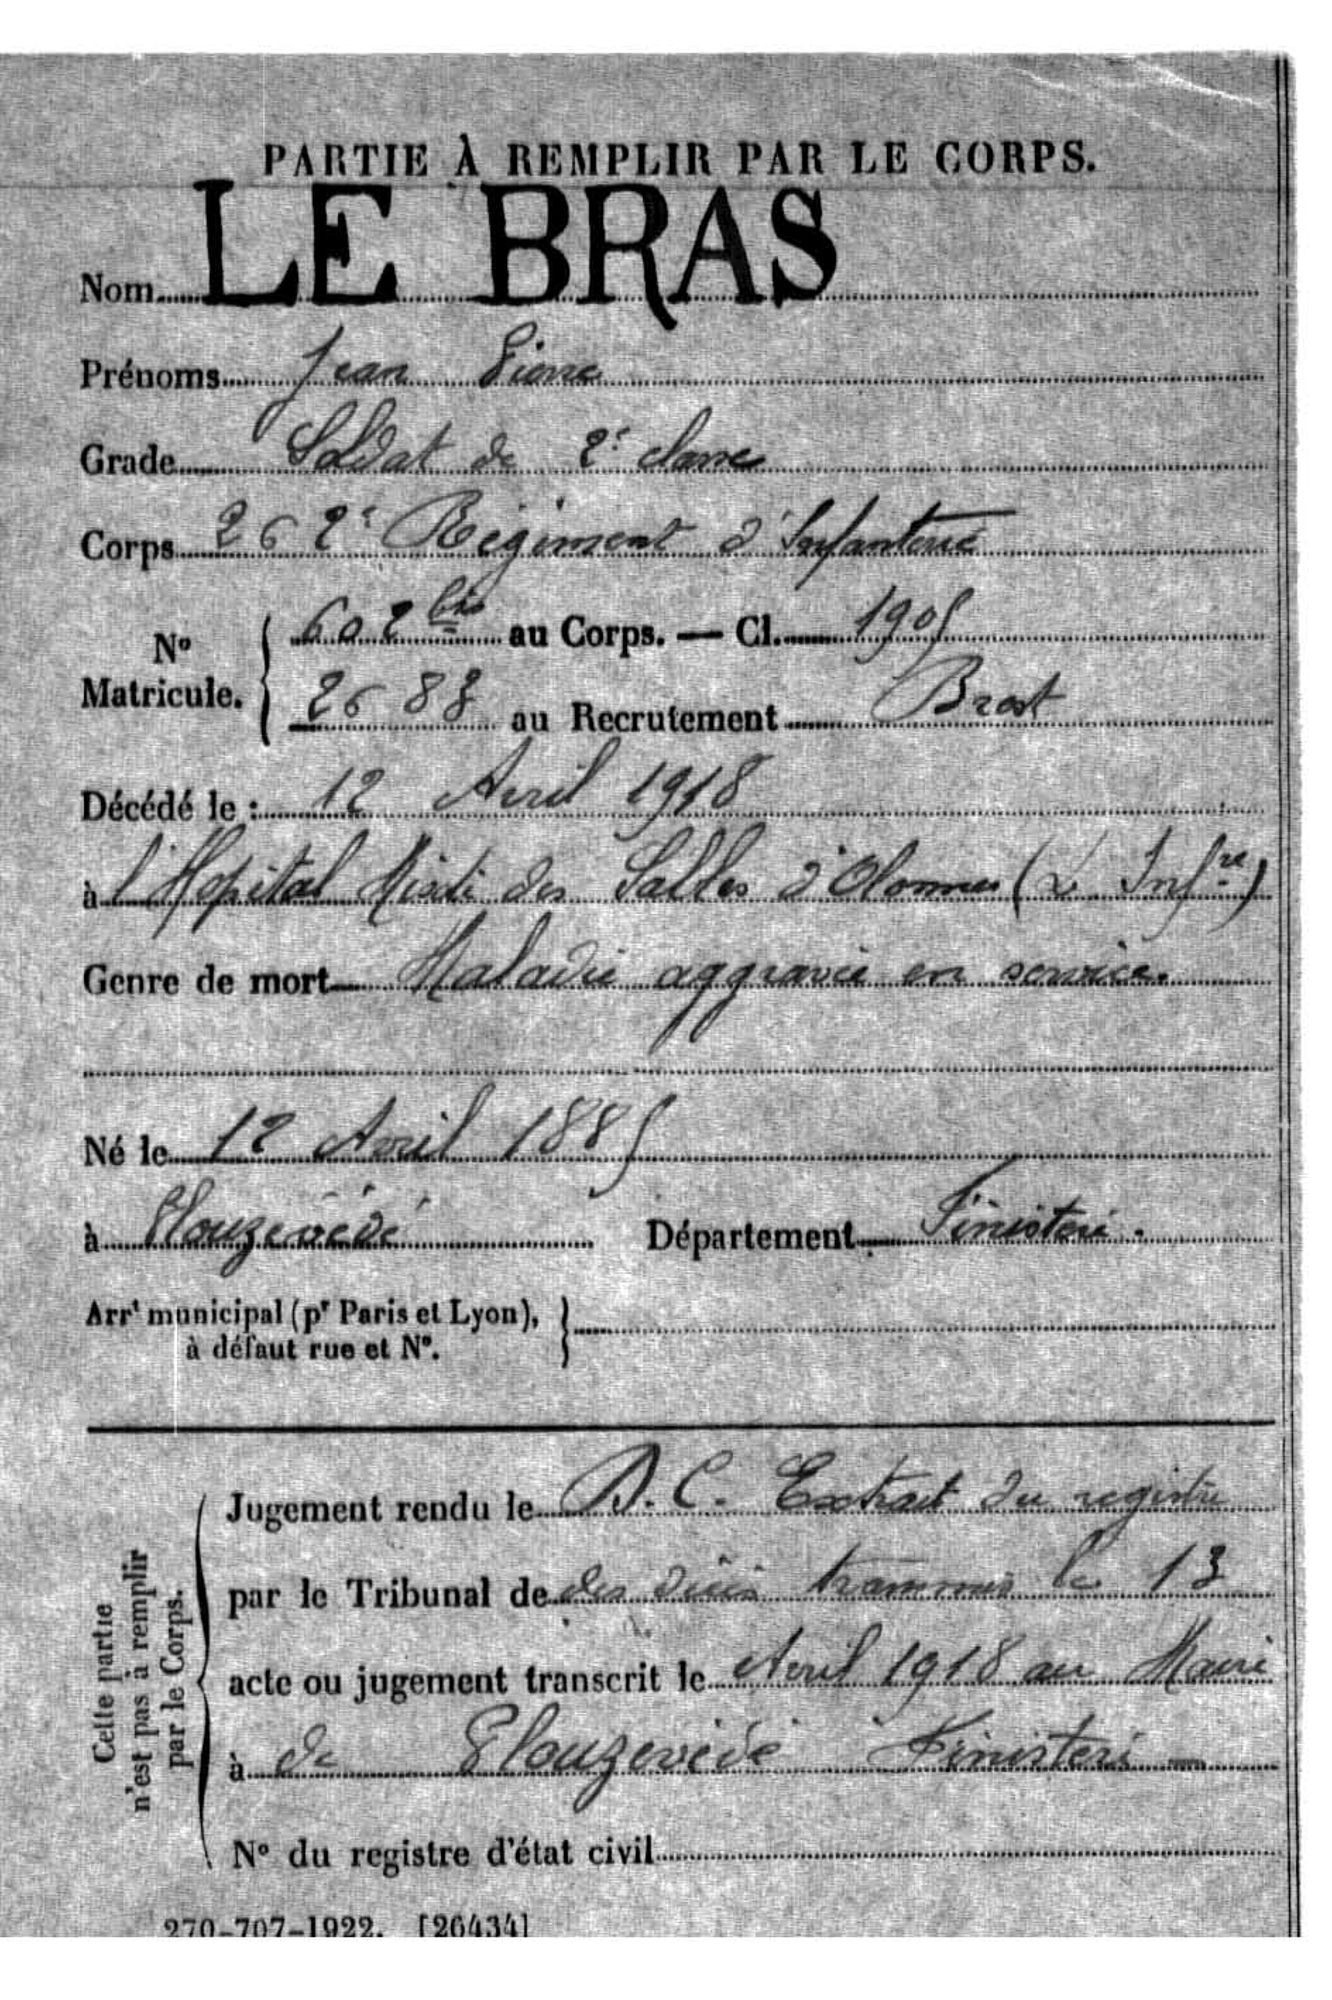 PARTIE À REMPLIR PAR LE CORPS.
Nom LE BRAS
Prénoms Jean Pierre
Grade Soldat de 2e classe
Corps 262e Régiment d'Infanterie
No Matricule. 602 bis au Corps. — Cl. 1905
2683 au Recrutement Brest
Décédé le : 12 Avril 1918
à l'Hopital des Sables d'Olonnes (L. Infre)
Genre de mort Maladie aggravée en service.
Né le 12 Avril 1885
à Plouzévédé Département Finistère.
Arrt municipal (pr Paris et Lyon),
à défaut rue et No.
Cette partie
n'est pas à remplir
par le Corps.
Jugement rendu le D. C. Extrait du registre
par le Tribunal de des décès transmis le 13
acte ou jugement transcrit le Avril 1918 au Maire
à de Plouzévédé Finistère
No du registre d'état civil
270-707-1922. [26434]